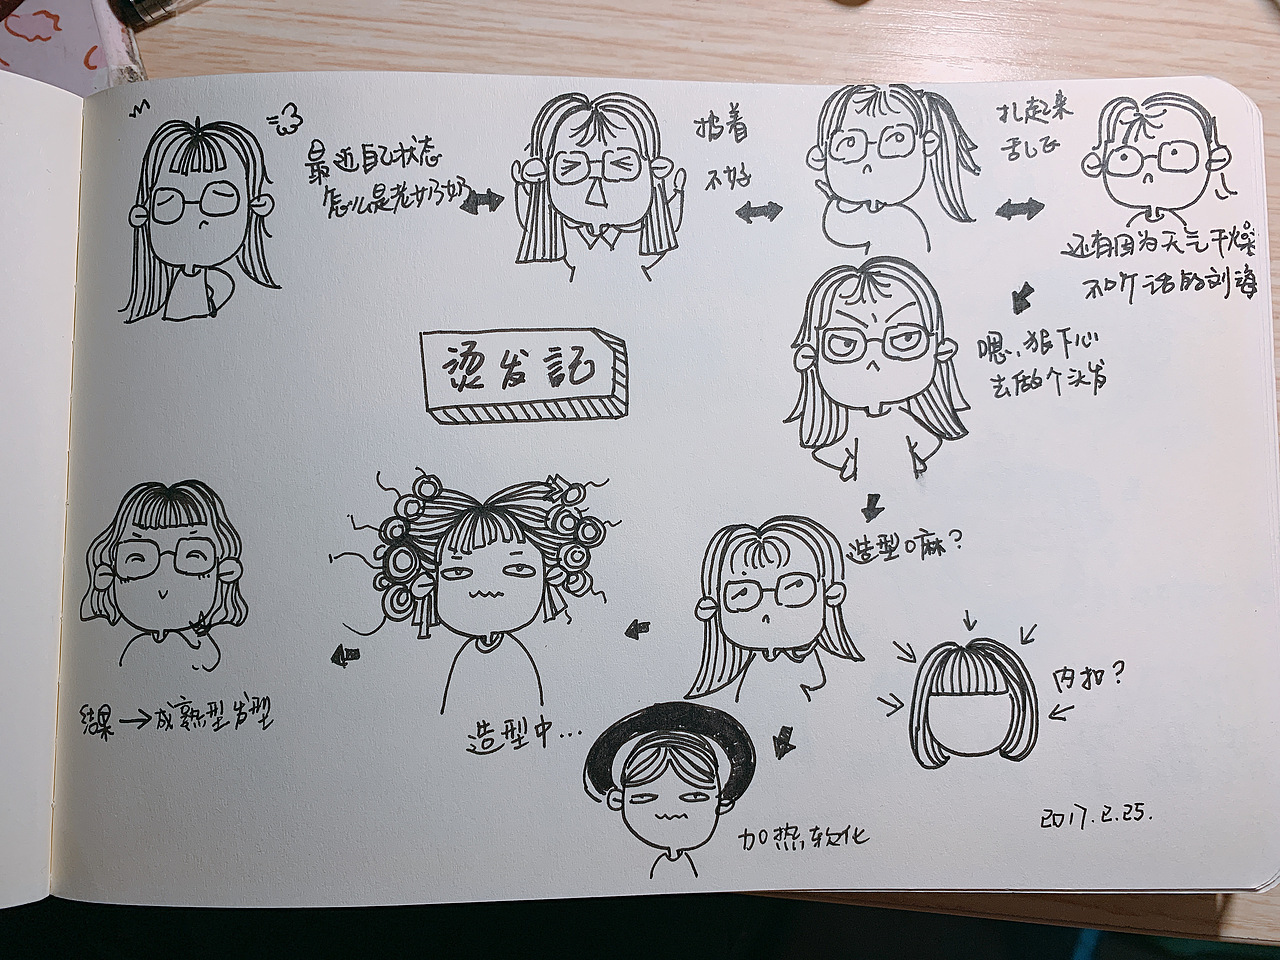 最近自己状态
怎么是老奶奶
披着
不好
扎起来
乱飞
还有因为天气干燥
不听话的刘海
嗯，狠下心
去做个头发
烫发記
造型口麻？
内扣？
加热软化
造型中...
结果→成熟型发型
2017.2.25.